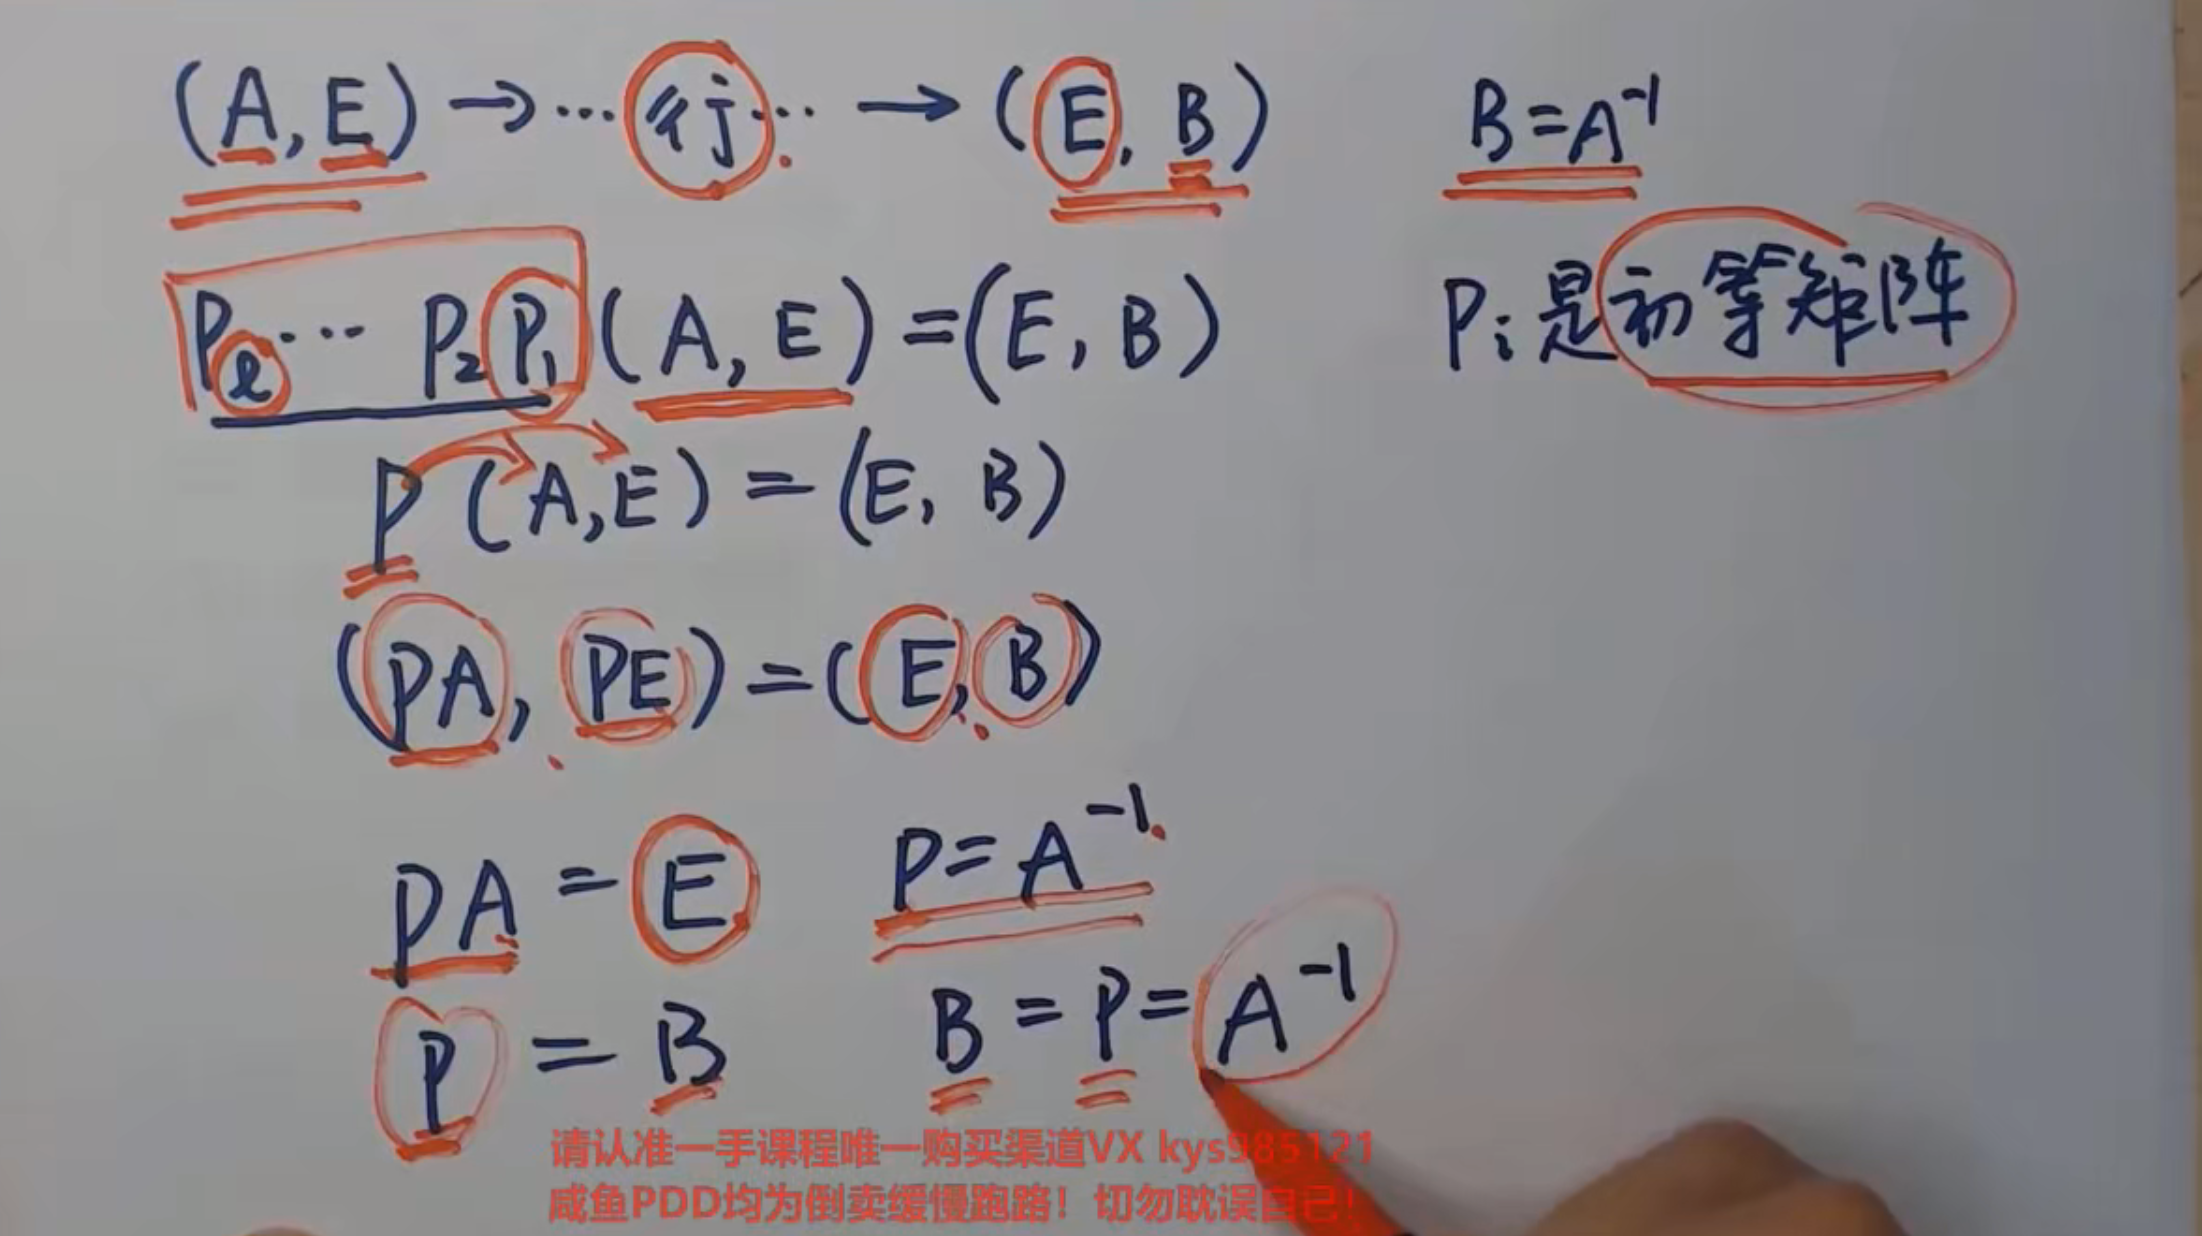 (A, E) → … 行 … → (E, B)
B = A⁻¹
Pₗ … P₂ P₁ (A, E) = (E, B)
Pᵢ 是初等矩阵
P (A, E) = (E, B)
(PA, PE) = (E, B)
PA = E
P = A⁻¹
P = B
B = P = A⁻¹
请认准一手课程唯一购买渠道VX kys985121
咸鱼PDD均为倒卖缓慢跑路！切勿耽误自己！